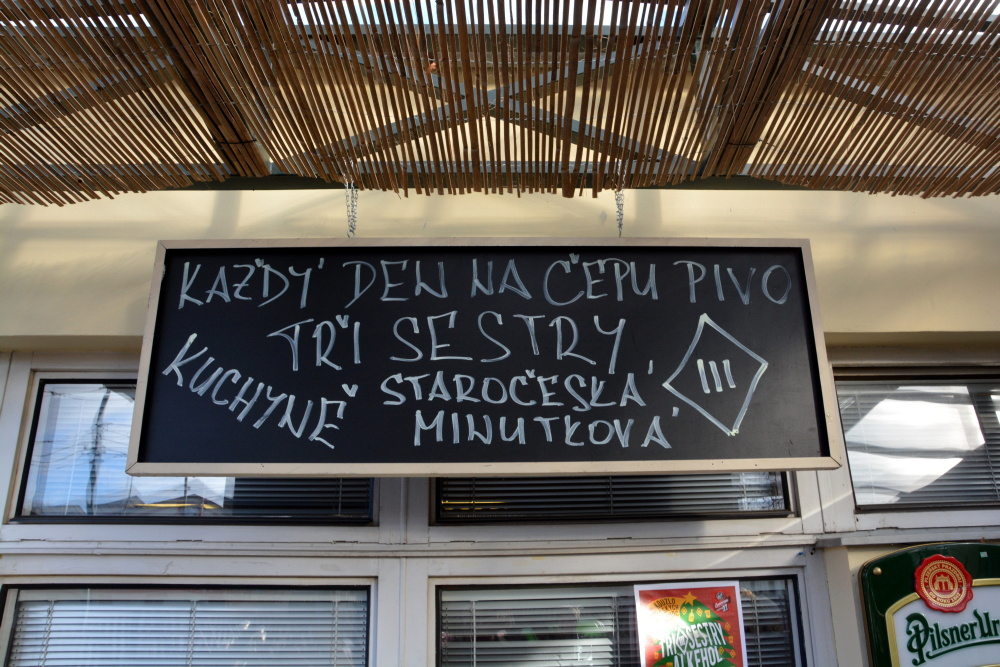 KAŽDÝ DEN NA ČEPU PIVO
TŘI SESTRY
KUCHYNĚ
STAROČESKÁ
MINUTKOVÁ
III
TŘI SESTRY
Pilsner Ur